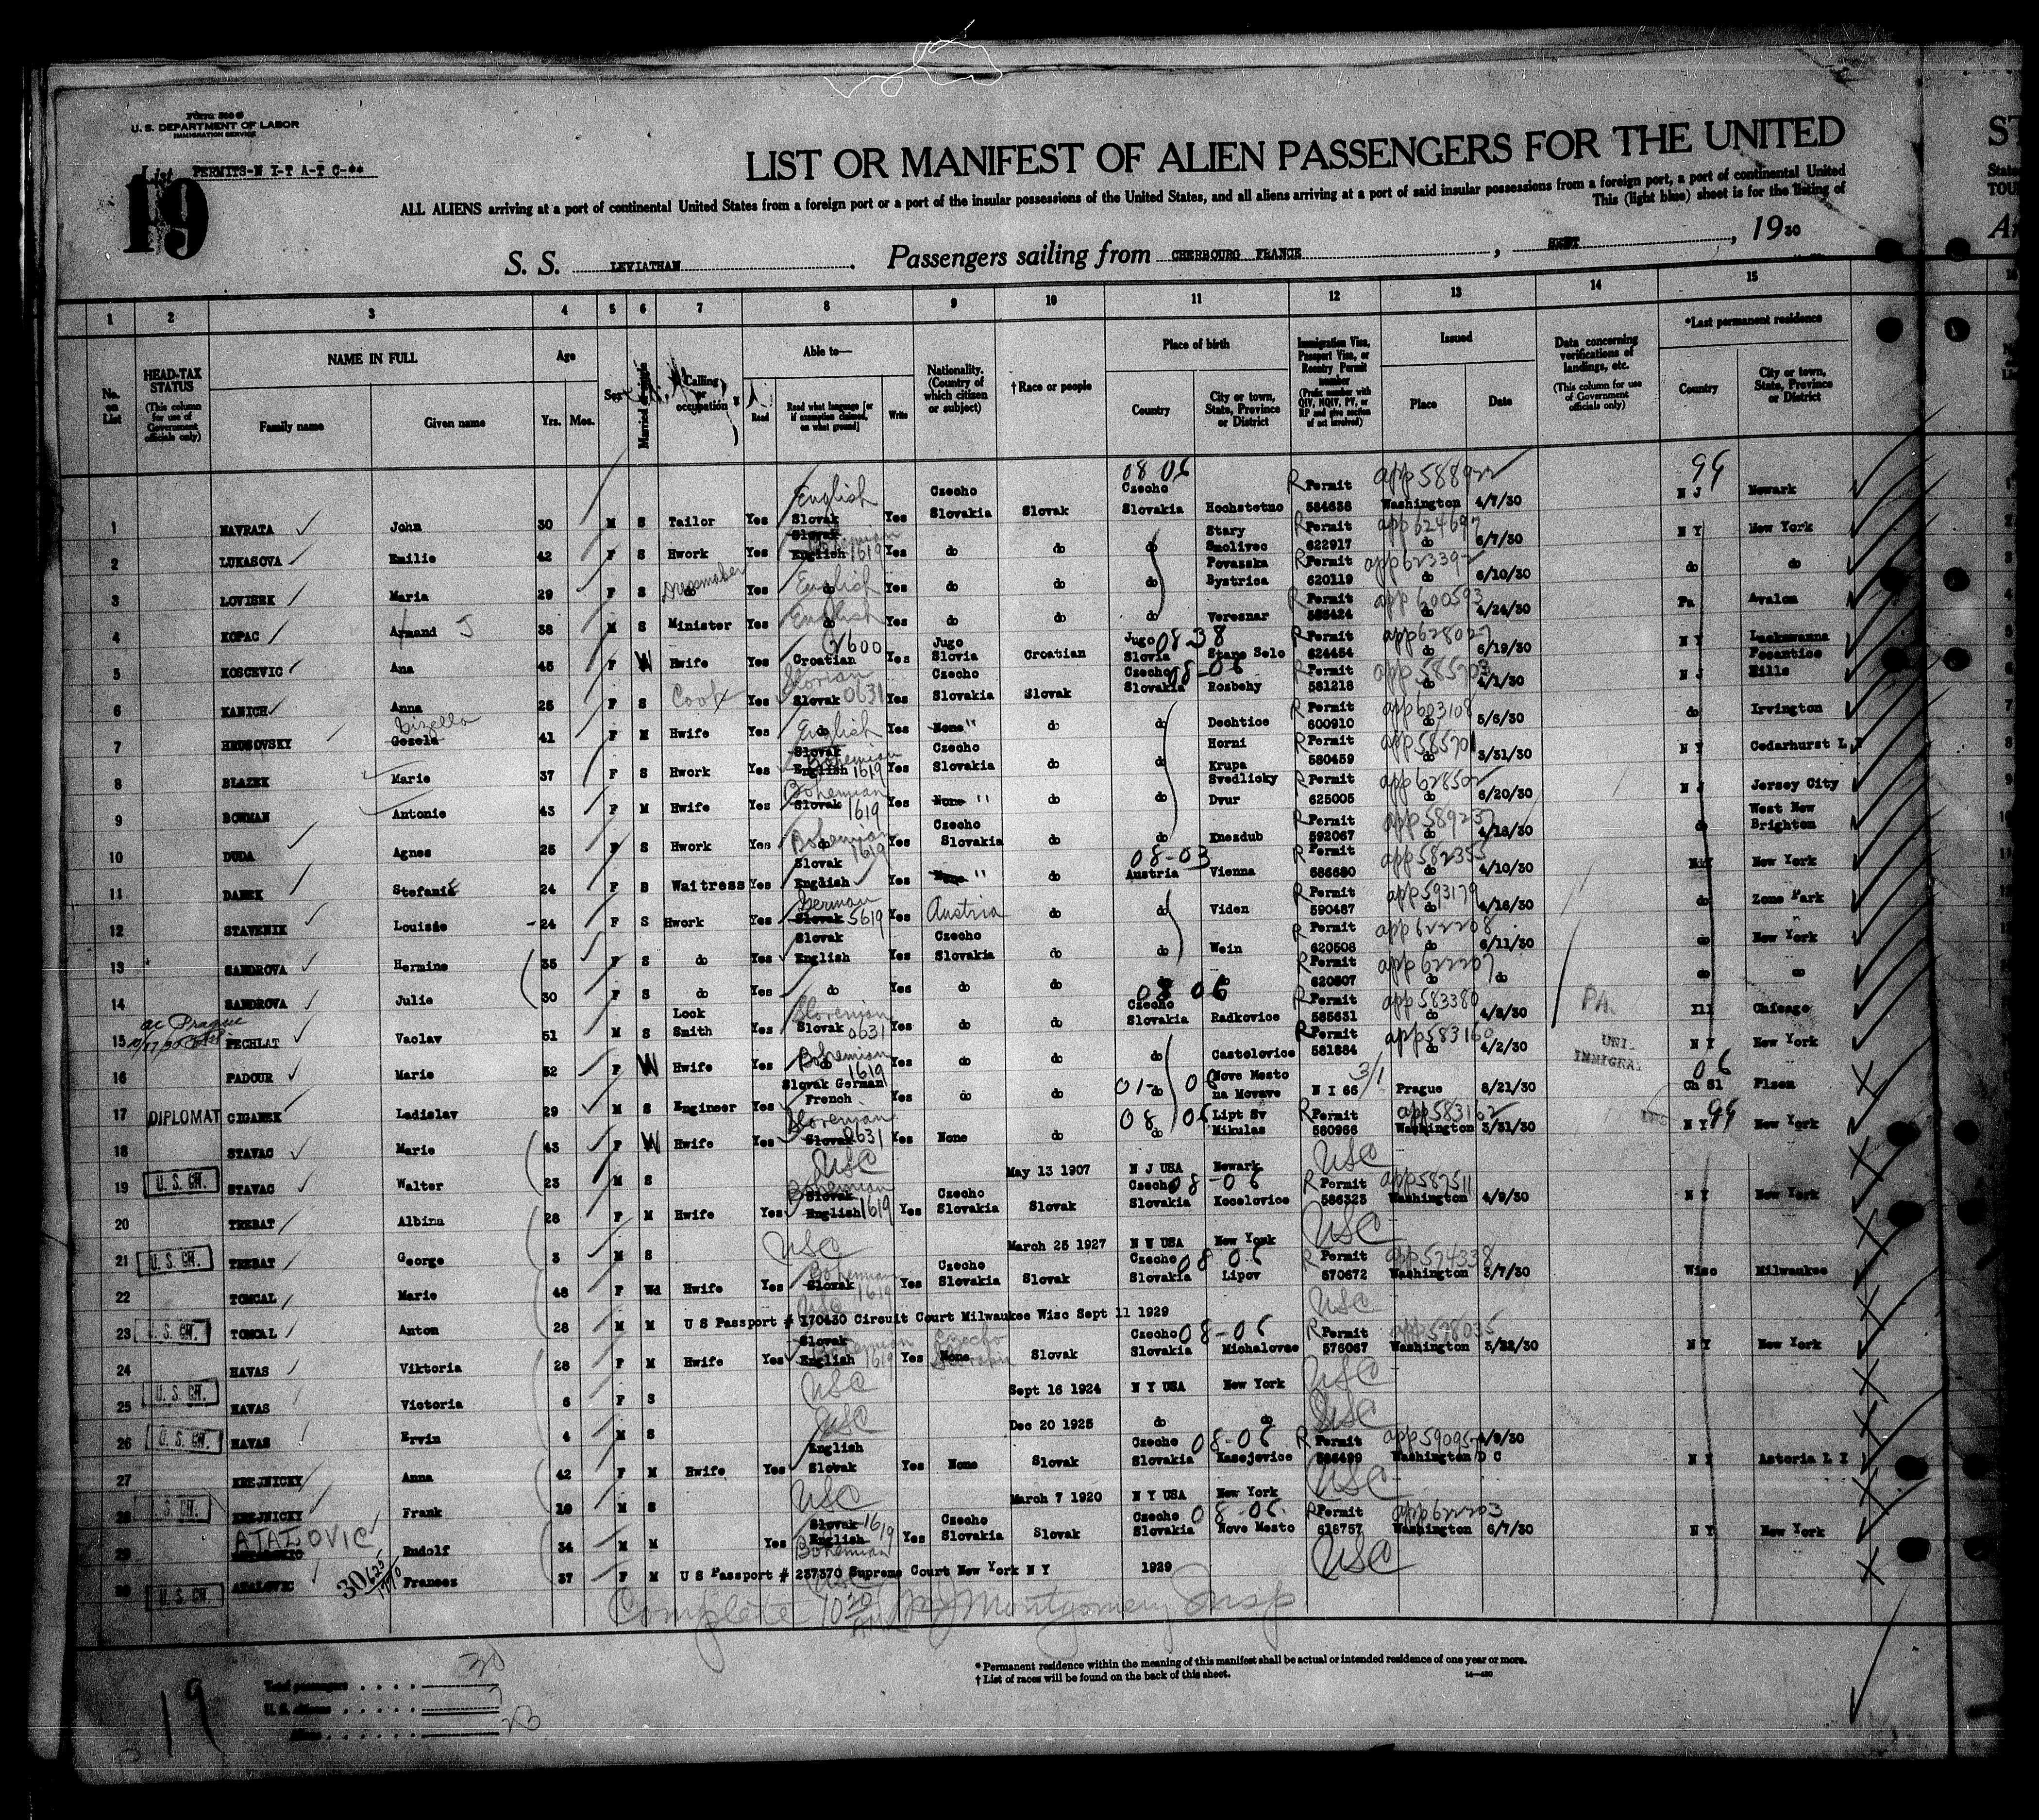 Form 500 B
U. S. DEPARTMENT OF LABOR
IMMIGRATION SERVICE
List PERMITS-N Y-T A-T C-**
19
LIST OR MANIFEST OF ALIEN PASSENGERS FOR THE UNITED
ALL ALIENS arriving at a port of continental United States from a foreign port or a port of the insular possessions of the United States, and all aliens arriving at a port of said insular possessions from a foreign port, a port of continental United
This (light blue) sheet is for the listing of
S. S. LEVIATHAN. Passengers sailing from CHERBOURG FRANCE, SEPT, 1930
1 2 3 4 5 6 7 8 9 10 11 12 13 14 15
No. on List
HEAD-TAX STATUS (This column for use of Government officials only)
NAME IN FULL Family name Given name
Age Yrs. Mos.
Sex
Married or single
Calling or occupation
Able to— Read Read what language [or if exemption claimed, on what ground] Write
Nationality. (Country of which citizen or subject)
†Race or people
Place of birth Country City or town, State, Province or District
Immigration Visa, Passport Visa, or Reentry Permit number (Prefix number with QIV, NQIV, PV, or RP and give section of act involved)
Issued Place Date
Data concerning verifications of landings, etc. (This column for use of Government officials only)
*Last permanent residence Country City or town, State, Province or District
1 NAVRATA John 30 M S Tailor Yes English Slovak Yes Czecho Slovakia Slovak 08 06 Czecho Slovakia Hochstetno R Permit 584638 app 588922 Washington 4/7/30 99 N J Newark
2 LUKASOVA Emilie 42 F S Hwork Yes Slovak English Bohemian 1619 Yes do do do Stary Smolivec R Permit 622917 app 624697 do 6/7/30 N Y New York
3 LOVISEK Maria 29 F S do Dressmaker Yes do English Yes do do do Povazska Bystrica R Permit 620119 app 623392 do 6/10/30 do do
4 KOPAC Armand J 38 M S Minister Yes do English Yes do do do Veresnar R Permit 585424 app 600593 do 4/24/30 Pa Avalon
5 KOSCEVIC Ana 45 F W Hwife Yes Croatian 0/600 Yes Jugo Slovia Croatian Jugo Slovia 08 38 Stare Selo R Permit 624454 app 628027 do 6/19/30 N Y Lackawanna
6 KANICH Anna 25 F S Cook Yes Slovak 0631 Yes Czecho Slovakia Slovak Czecho Slovakia 08-06 Rozbehy R Permit 581218 app 585703 do 4/1/30 N J Pocantico Hills
7 HRUSOVSKY Gezela Gizella 41 F M Hwife Yes do English Yes None " do do Dechtice R Permit 600910 app 603108 do 5/6/30 do Irvington
8 BLAZEK Marie 37 F S Hwork Yes Slovak English Bohemian 1619 Yes Czecho Slovakia do do Horni Krupa R Permit 580459 app 585701 do 3/31/30 N Y Cedarhurst L I
9 BOWMAN Antonie 43 F M Hwife Yes Slovak Bohemian 1619 Yes None " do do Svedlicky Dvur R Permit 625005 app 628502 do 6/20/30 N J Jersey City
10 DUDA Agnes 25 F S Hwork Yes do Bohemian 1619 Yes Czecho Slovakia do do Knezdub R Permit 592067 app 589237 do 4/18/30 do West New Brighton
11 DANEK Stefanie 24 F S Waitress Yes Slovak English Yes None " do 08-03 Austria Vienna R Permit 586680 app 582355 do 4/10/30 N Y New York
12 STAVENIK Louisie 24 F S Hwork Yes Slovak German 5619 Yes Austria do do Viden R Permit 590487 app 593179 do 4/16/30 do Zone Park
13 SANDROVA Hermine 35 F S do Yes Slovak English Yes Czecho Slovakia do do Wein R Permit 620508 app 622208 do 6/11/30 do New York
14 SANDROVA Julie 30 F S do Yes do Yes do do do R Permit 620507 app 622207 do do do do
15 PECHLAT Vaclav 51 M S Lock Smith Yes Slovak 0631 Yes do do 08 06 Czecho Slovakia Radkovice R Permit 585631 app 583380 do 4/8/30 Ill Chicago
16 PADOUR Marie 52 F W Hwife Yes do Bohemian 1619 Yes do do do Castolovice R Permit 581884 app 583160 do 4/2/30 N Y New York
17 DIPLOMAT CIGANEK Ladislav 29 M S Engineer Yes Slovak German French Yes do do 01- do 06 Nove Mesto na Morave N I 66 3/1 Prague 8/21/30 06 Ch Sl Plzen
18 STAVAC Marie 43 F W Hwife Yes Slovak 0631 Yes None do 08 06 do Lipt Sv Mikulas R Permit 580966 app 583162 Washington 3/31/30 N Y 99 New York
19 U. S. CH. STAVAC Walter 23 M S USC May 13 1907 N J USA Newark USC
20 TREBAT Albina 28 F M Hwife Yes Slovak English Bohemian 1619 Yes Czecho Slovakia Slovak Czecho Slovakia 08-06 Kocelovice R Permit 586323 app 587511 Washington 4/9/30 N Y New York
21 U. S. CH. TREBAT George 3 M S USC March 25 1927 N W USA New York USC
22 TOMCAL Marie 48 F Wd Hwife Yes Slovak Bohemian 1619 Yes Czecho Slovakia Slovak Czecho Slovakia 08 06 Lipov R Permit 570672 app 574338 Washington 3/7/30 Wisc Milwaukee
23 U. S. CH. TOMCAL Anton 28 M M USC U S Passport # 170430 Circuit Court Milwaukee Wisc Sept 11 1929 USC
24 HAVAS Viktoria 28 F M Hwife Yes Slovak English Bohemian 1619 Yes None Czecho Slovakia Slovak Czecho Slovakia 08-06 Michalovce R Permit 576067 app 578035 Washington 3/22/30 N Y New York
25 U. S. CH. HAVAS Victoria 6 F S USC Sept 16 1924 N Y USA New York USC
26 U. S. CH. HAVAS Ervin 4 M S USC Dec 20 1925 do do USC
27 KREJNICKY Anna 42 F M Hwife Yes English Slovak Yes None Slovak Czecho Slovakia 08-06 Kasejovice R Permit app 59095 Washington D C 4/9/30 N Y Astoria L I
28 U. S. CH. KREJNICKY Frank 10 M S USC March 7 1920 N Y USA New York USC
29 ATALOVIC Rudolf 34 M M Yes Slovak English Bohemian 1619 Yes Czecho Slovakia Slovak Czecho Slovakia 08-06 Nove Mesto R Permit 618757 app 622203 Washington 6/7/30 N Y New York
30 U. S. CH. Francez 37 F M USC U S Passport # 237370 Supreme Court New York N Y 1929 USC
Complete 10 20 AM Montgomery Insp
* Permanent residence within the meaning of this manifest shall be actual or intended residence of one year or more.
† List of races will be found on the back of this sheet. 14—480
Total passengers 30
U. S. citizens 7
Aliens 23
19